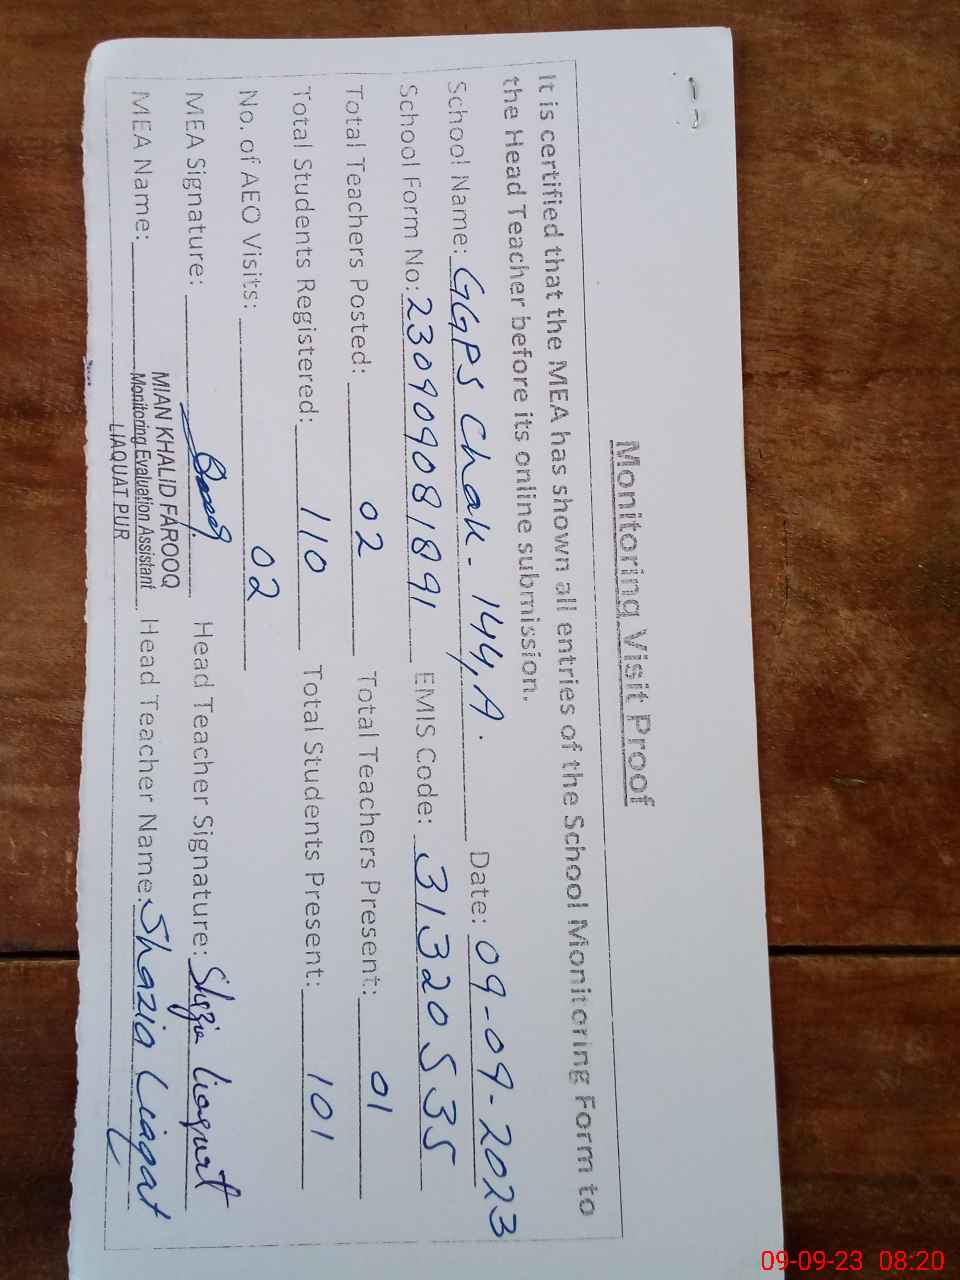 Monitoring Visit Proof
It is certified that the MEA has shown all entries of the School Monitoring Form to
the Head Teacher before its online submission.
School Name: GGPS Chak - 144, A. Date: 09-09-2023
School Form No: 23090908 1891 EMIS Code: 31320535
Total Teachers Posted: 02 Total Teachers Present: 01
Total Students Registered: 110 Total Students Present: 101
No. of AEO Visits: 02
MEA Signature: Head Teacher Signature: Shazia Liaquat
MEA Name: MIAN KHALID FAROOQ
Monitoring Evaluation Assistant
LIAQUAT PUR
Head Teacher Name: Shazia Liaqat
09-09-23 08:20